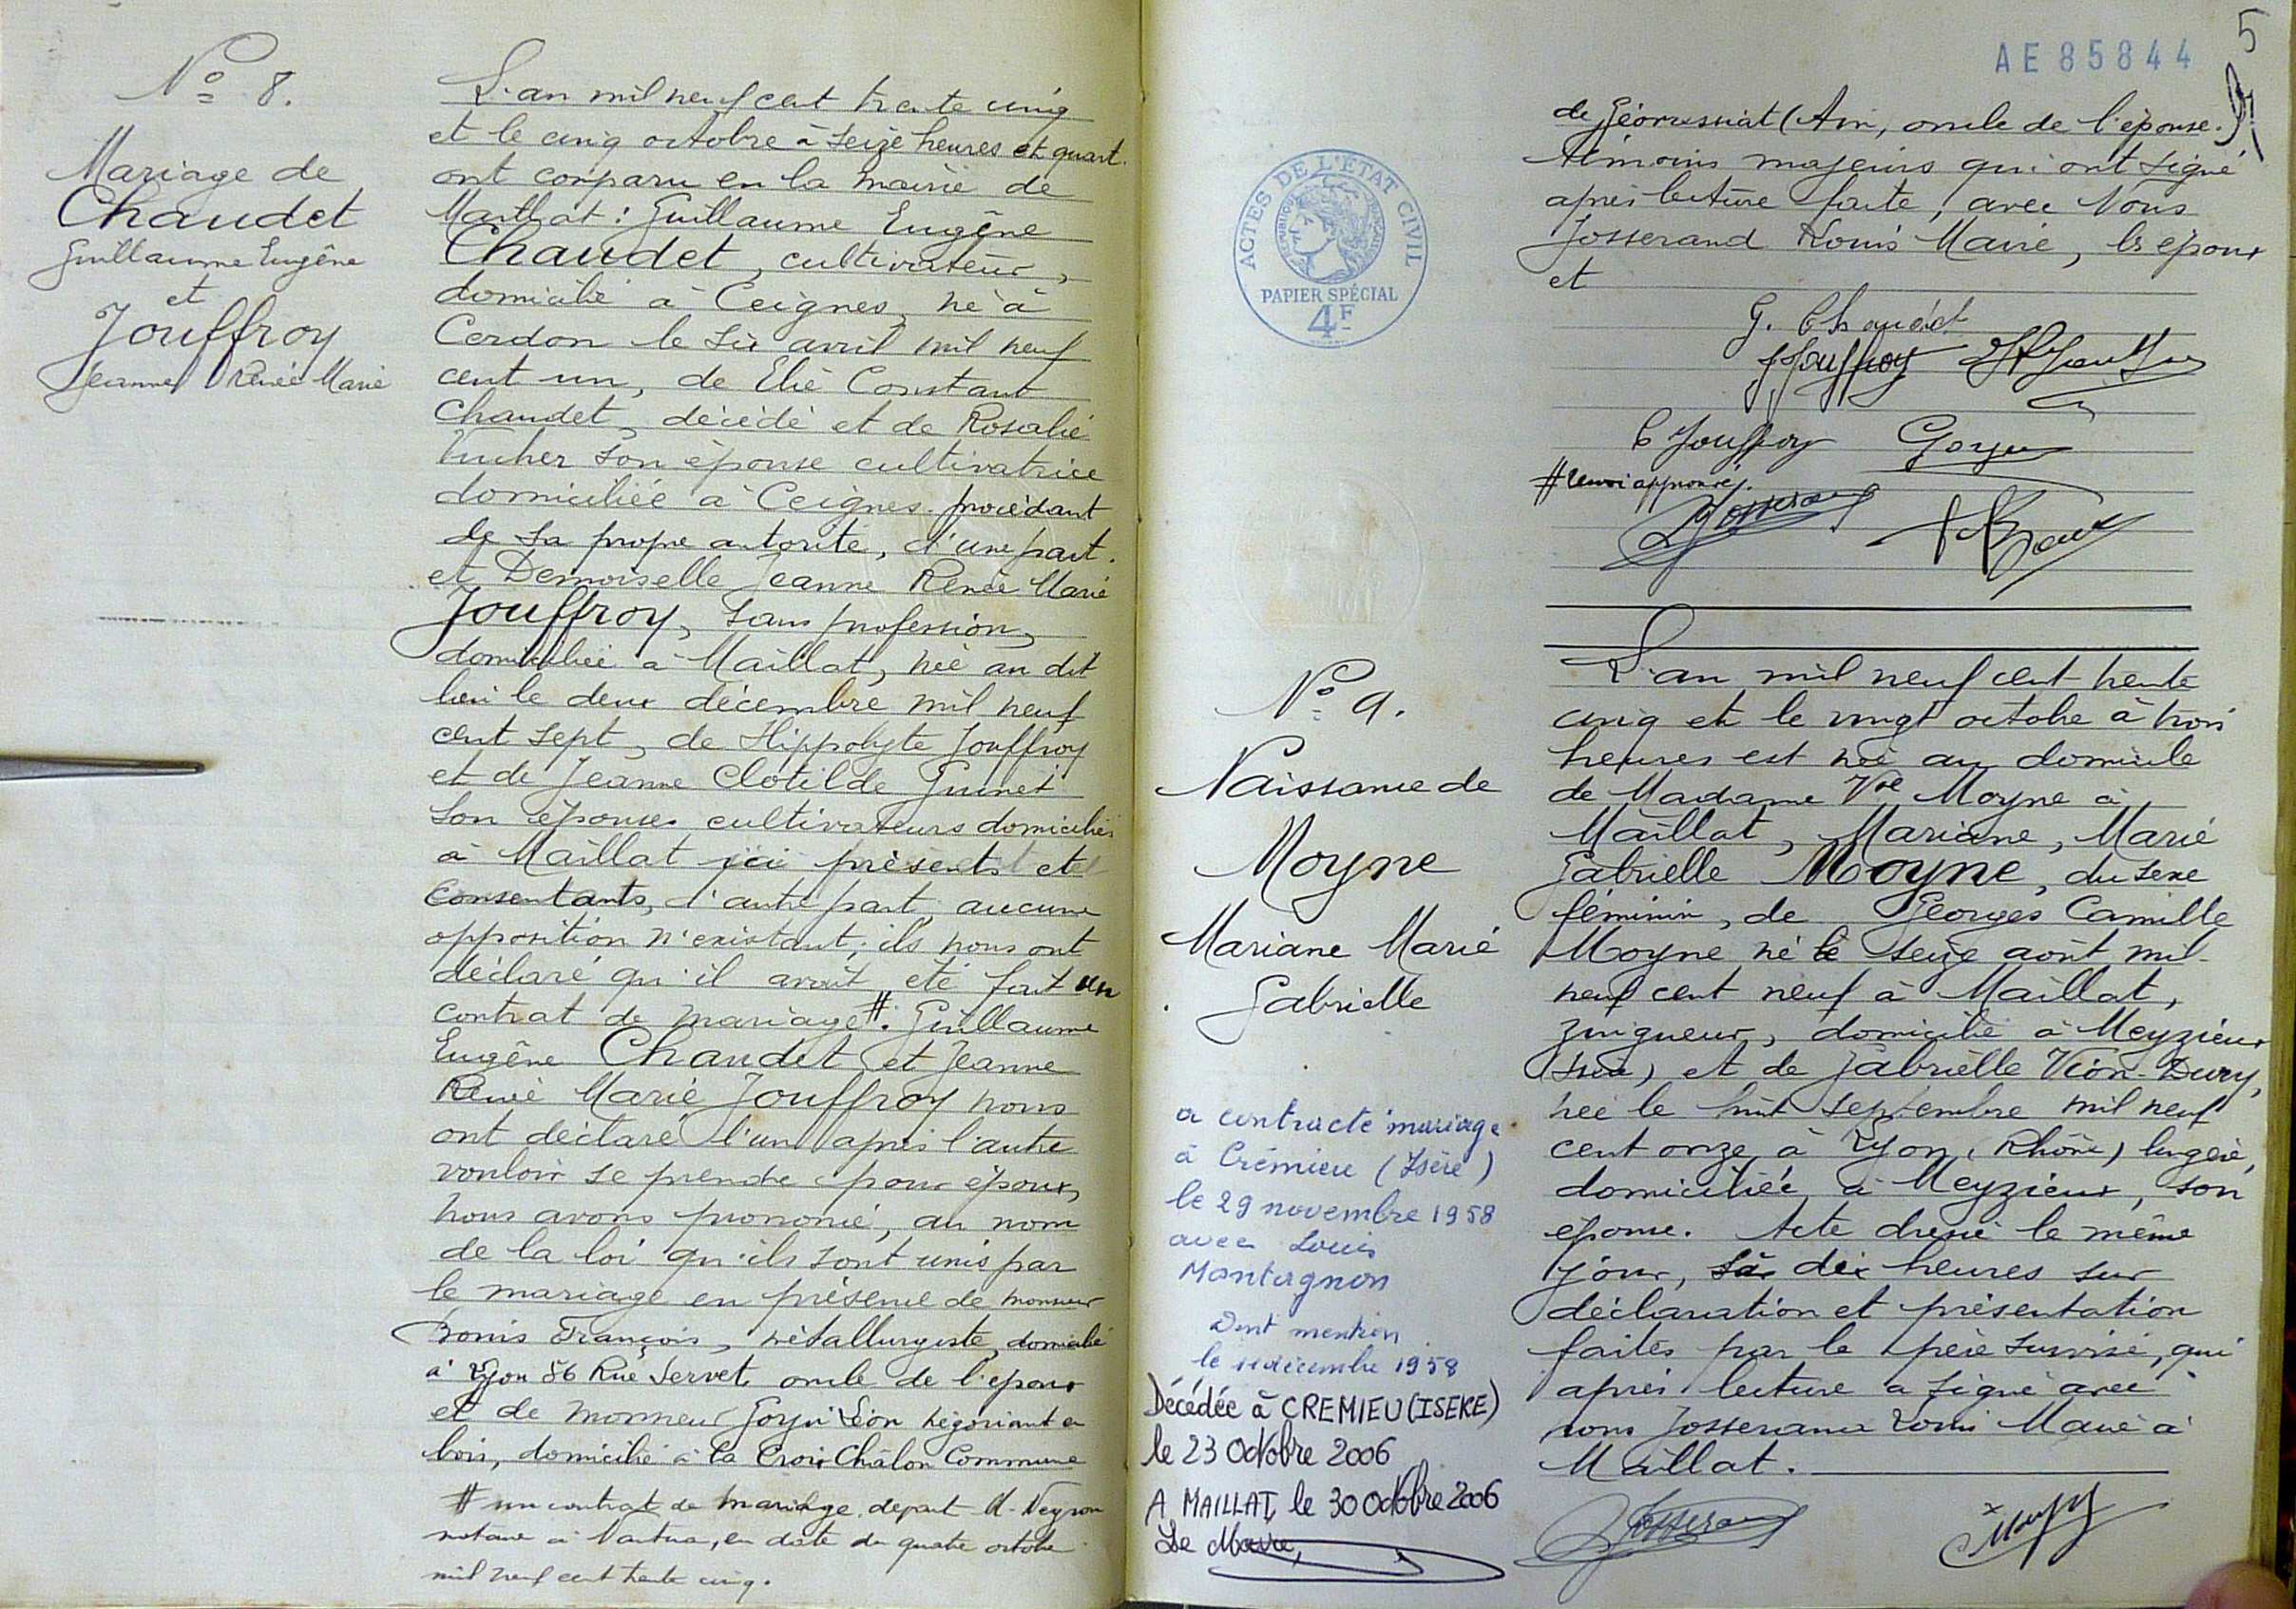 N° 8.
Mariage de
Chaudet
Guillaume Eugène
et
Jouffroy
Jeanne Renée Marie
L'an mil neuf cent trente cinq
et le cinq octobre à seize heures et quart.
ont comparu en la mairie de
Maillat : Guillaume Eugène
Chaudet, cultivateur,
domicilié à Ceignes, né à
Cerdon le six avril mil neuf
cent un, de Elie Constant
Chaudet, décédé et de Rosalie
Vucher son épouse cultivatrice
domiciliée à Ceignes. procédant
de sa propre autorité, d'une part.
et Demoiselle Jeanne Renée Marie
Jouffroy, sans profession,
domiciliée à Maillat, née au dit
lieu le deux décembre mil neuf
cent sept, de Hippolyte Jouffroy
et de Jeanne Clotilde Guinet
son épouse cultivateurs domiciliés
à Maillat ici présents et
consentants, d'autre part, aucune
opposition n'existant, ils nous ont
déclaré qu'il avait été fait un
contrat de mariage #. Guillaume
Eugène Chaudet et Jeanne
Renée Marie Jouffroy nous
ont déclaré l'un après l'autre
vouloir se prendre pour époux,
nous avons prononcé, au nom
de la loi qu'ils sont unis par
le mariage en présence de monsieur
François, métallurgiste, domicilié
à Lyon 86 Rue Servet oncle de l'époux
et de monsieur Goyet Léon négociant en
bois, domicilié à la Croix Châlon Commune
# un contrat de mariage. depart M. Neyron
notaire à Nantua, en date du quatre octobre
mil neuf cent trente cinq.
AE 85844
5
de Géovreissiat (Ain, oncle de l'épouse.
témoins majeurs qui ont signé
après lecture faite, avec Nous
Josserand Louis Maire, les époux
et
ACTES DE L'ÉTAT CIVIL
PAPIER SPÉCIAL
4F
G. Chaudet
J Jouffroy
C Jouffroy
# renvoi approuvé.
Josserand
N° 9.
Naissance de
Moyne
Mariane Marie
Gabrielle
a contracté mariage
à Crémieu (Isère)
le 29 novembre 1958
avec Louis
Montagnon
Dont mention
le 11 décembre 1958
Décédée à CREMIEU (ISERE)
le 23 Octobre 2006
A MAILLAT, le 30 Octobre 2006
Le Maire,
L'an mil neuf cent trente
cinq et le vingt octobre à trois
heures est née au domicile
de Madame Vve Moyne à
Maillat, Mariane, Marie
Gabrielle Moyne, du sexe
féminin, de Georges Camille
Moyne né le seize août mil
neuf cent neuf à Maillat,
zingueur, domicilié à Meyzieux
(Isère) et de Gabrielle Vion-Dury,
née le huit septembre mil neuf
cent onze à Lyon (Rhône) lingère,
domiciliée à Meyzieux, son
épouse. Acte dressé le même
jour, à dix heures sur
déclaration et présentation
faites par le père susvisé, qui
après lecture a signé avec
nous Josserand Louis Maire à
Maillat.
Josserand